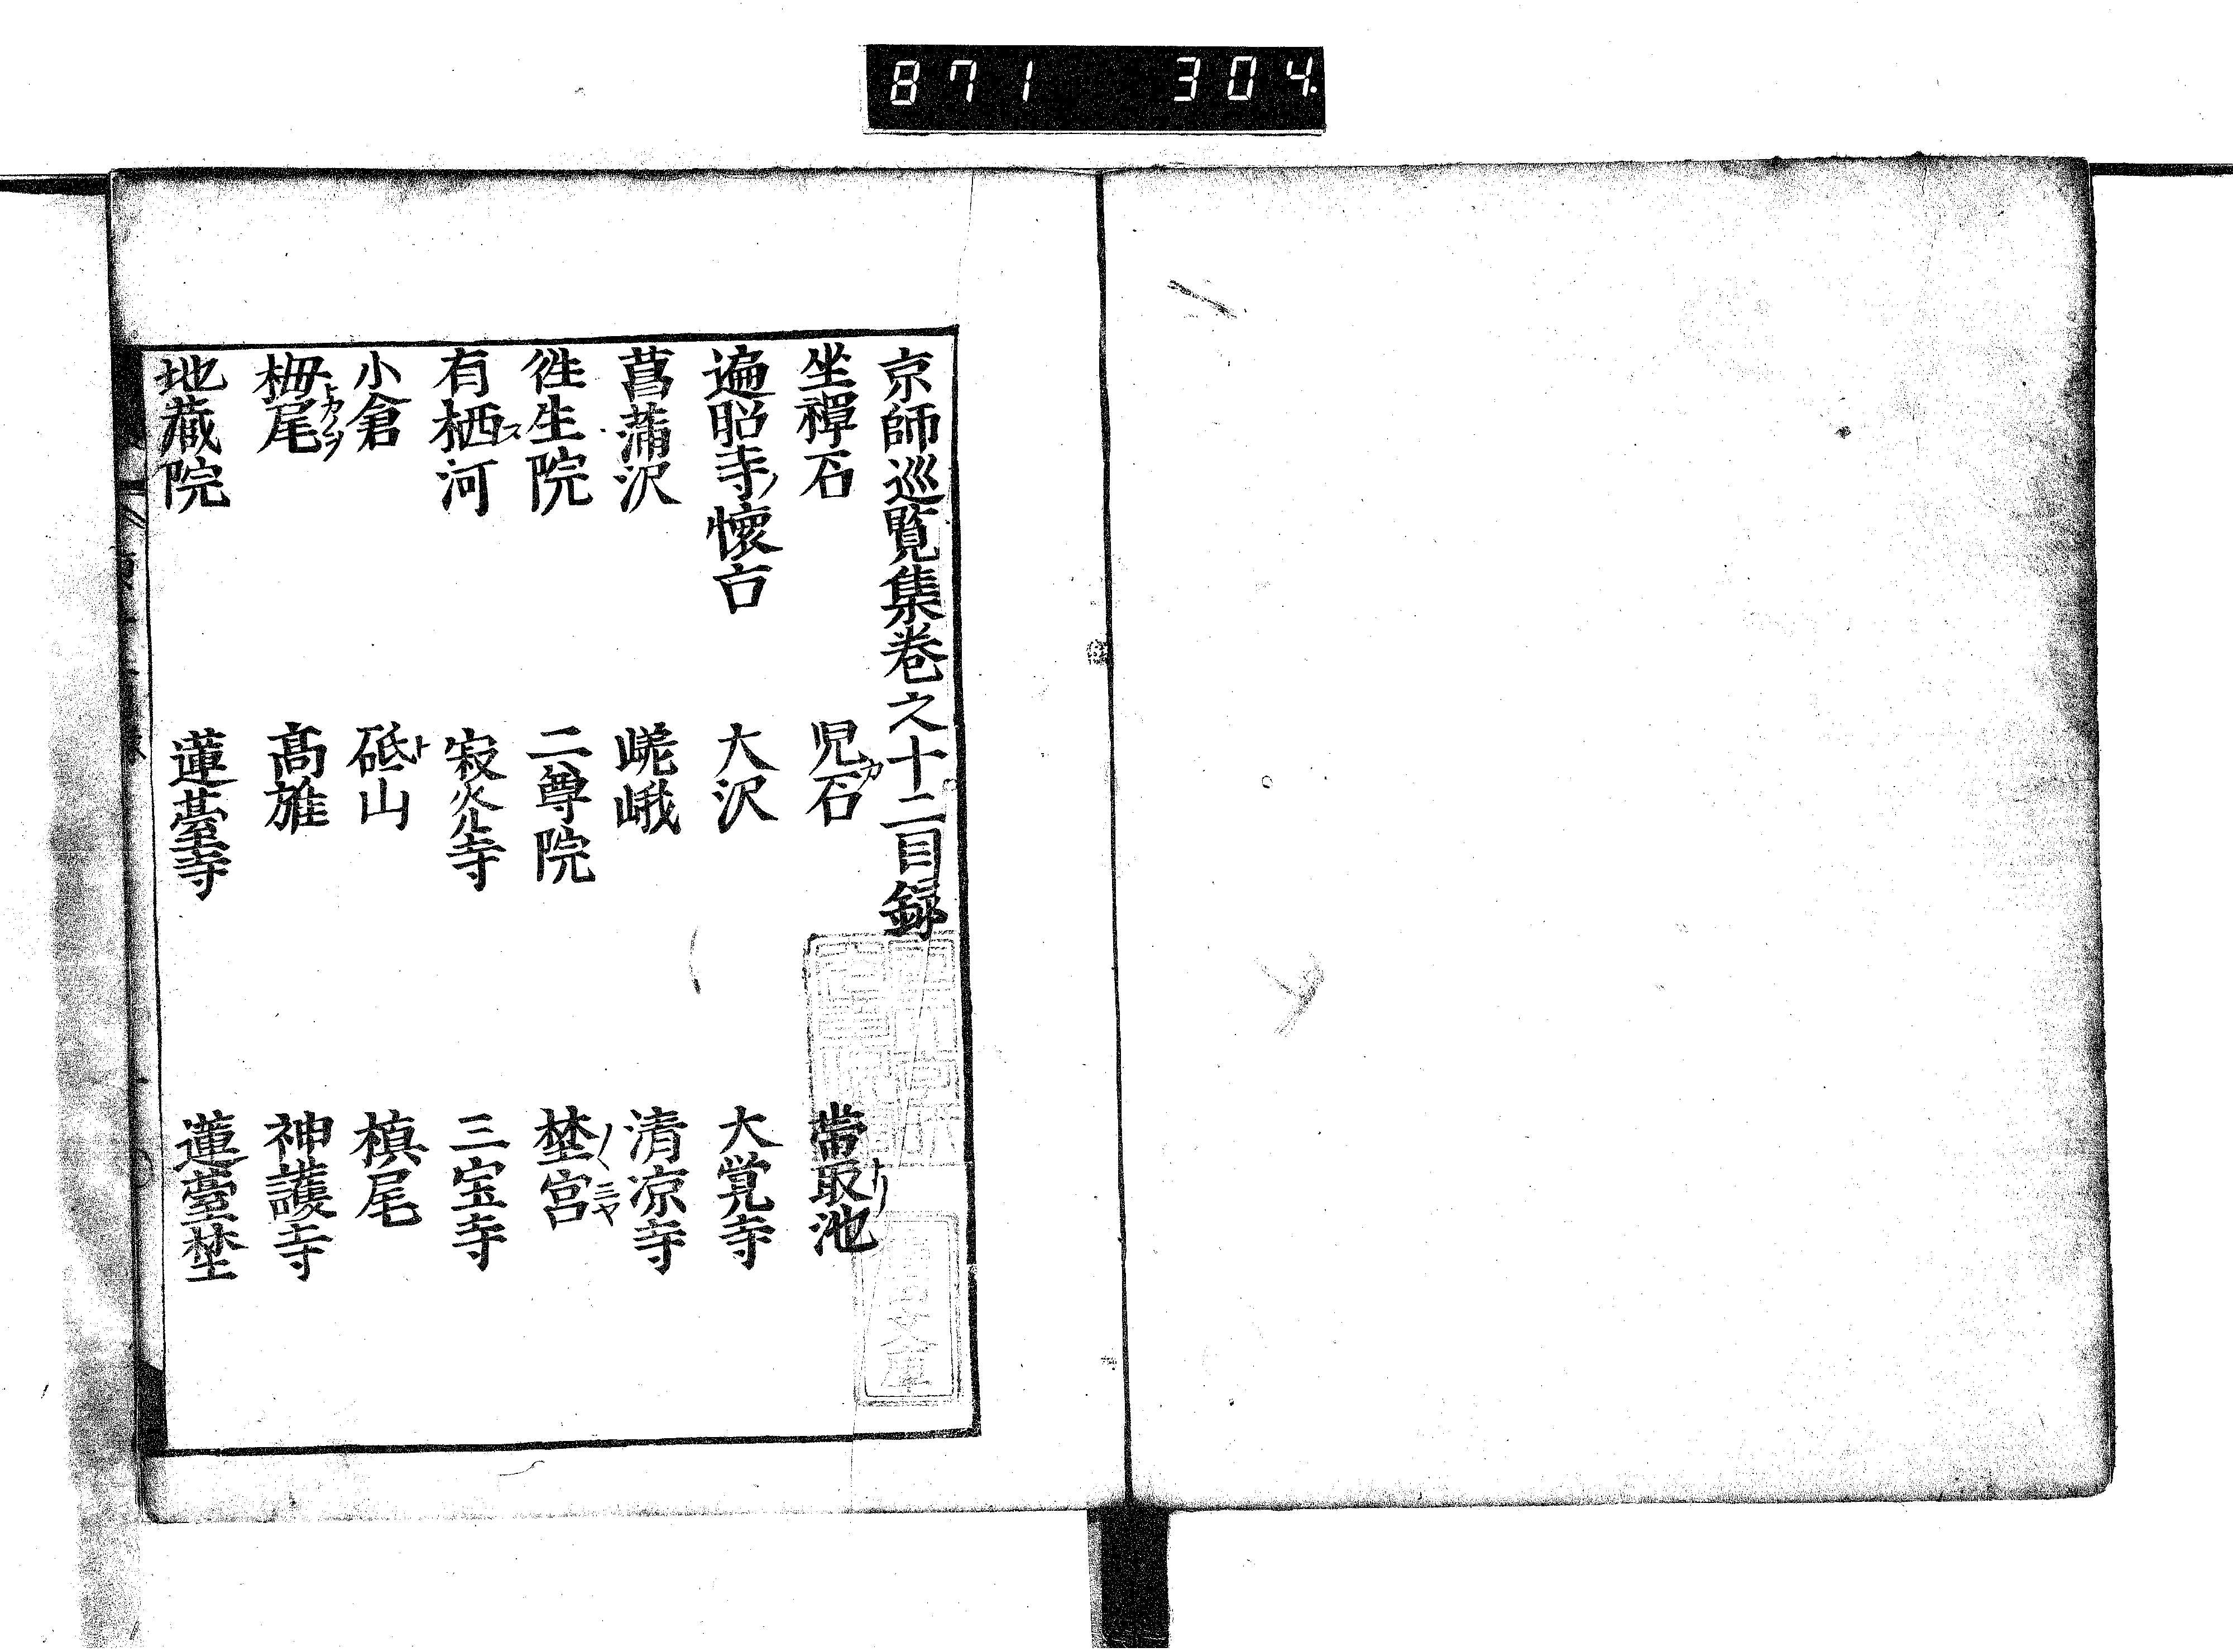 871 304
京師巡覧集巻之十二目録
坐禪石 児石 帯取池
遍昭寺ノ懐古 大沢 大覚寺
菖蒲沢 嵯峨 清凉寺
徃生院 二尊院 埜宮
有栖河 寂光寺 三宝寺
小倉 砥山 槙尾
栂尾 高雄 神護寺
地蔵院 蓮臺寺 蓮臺埜